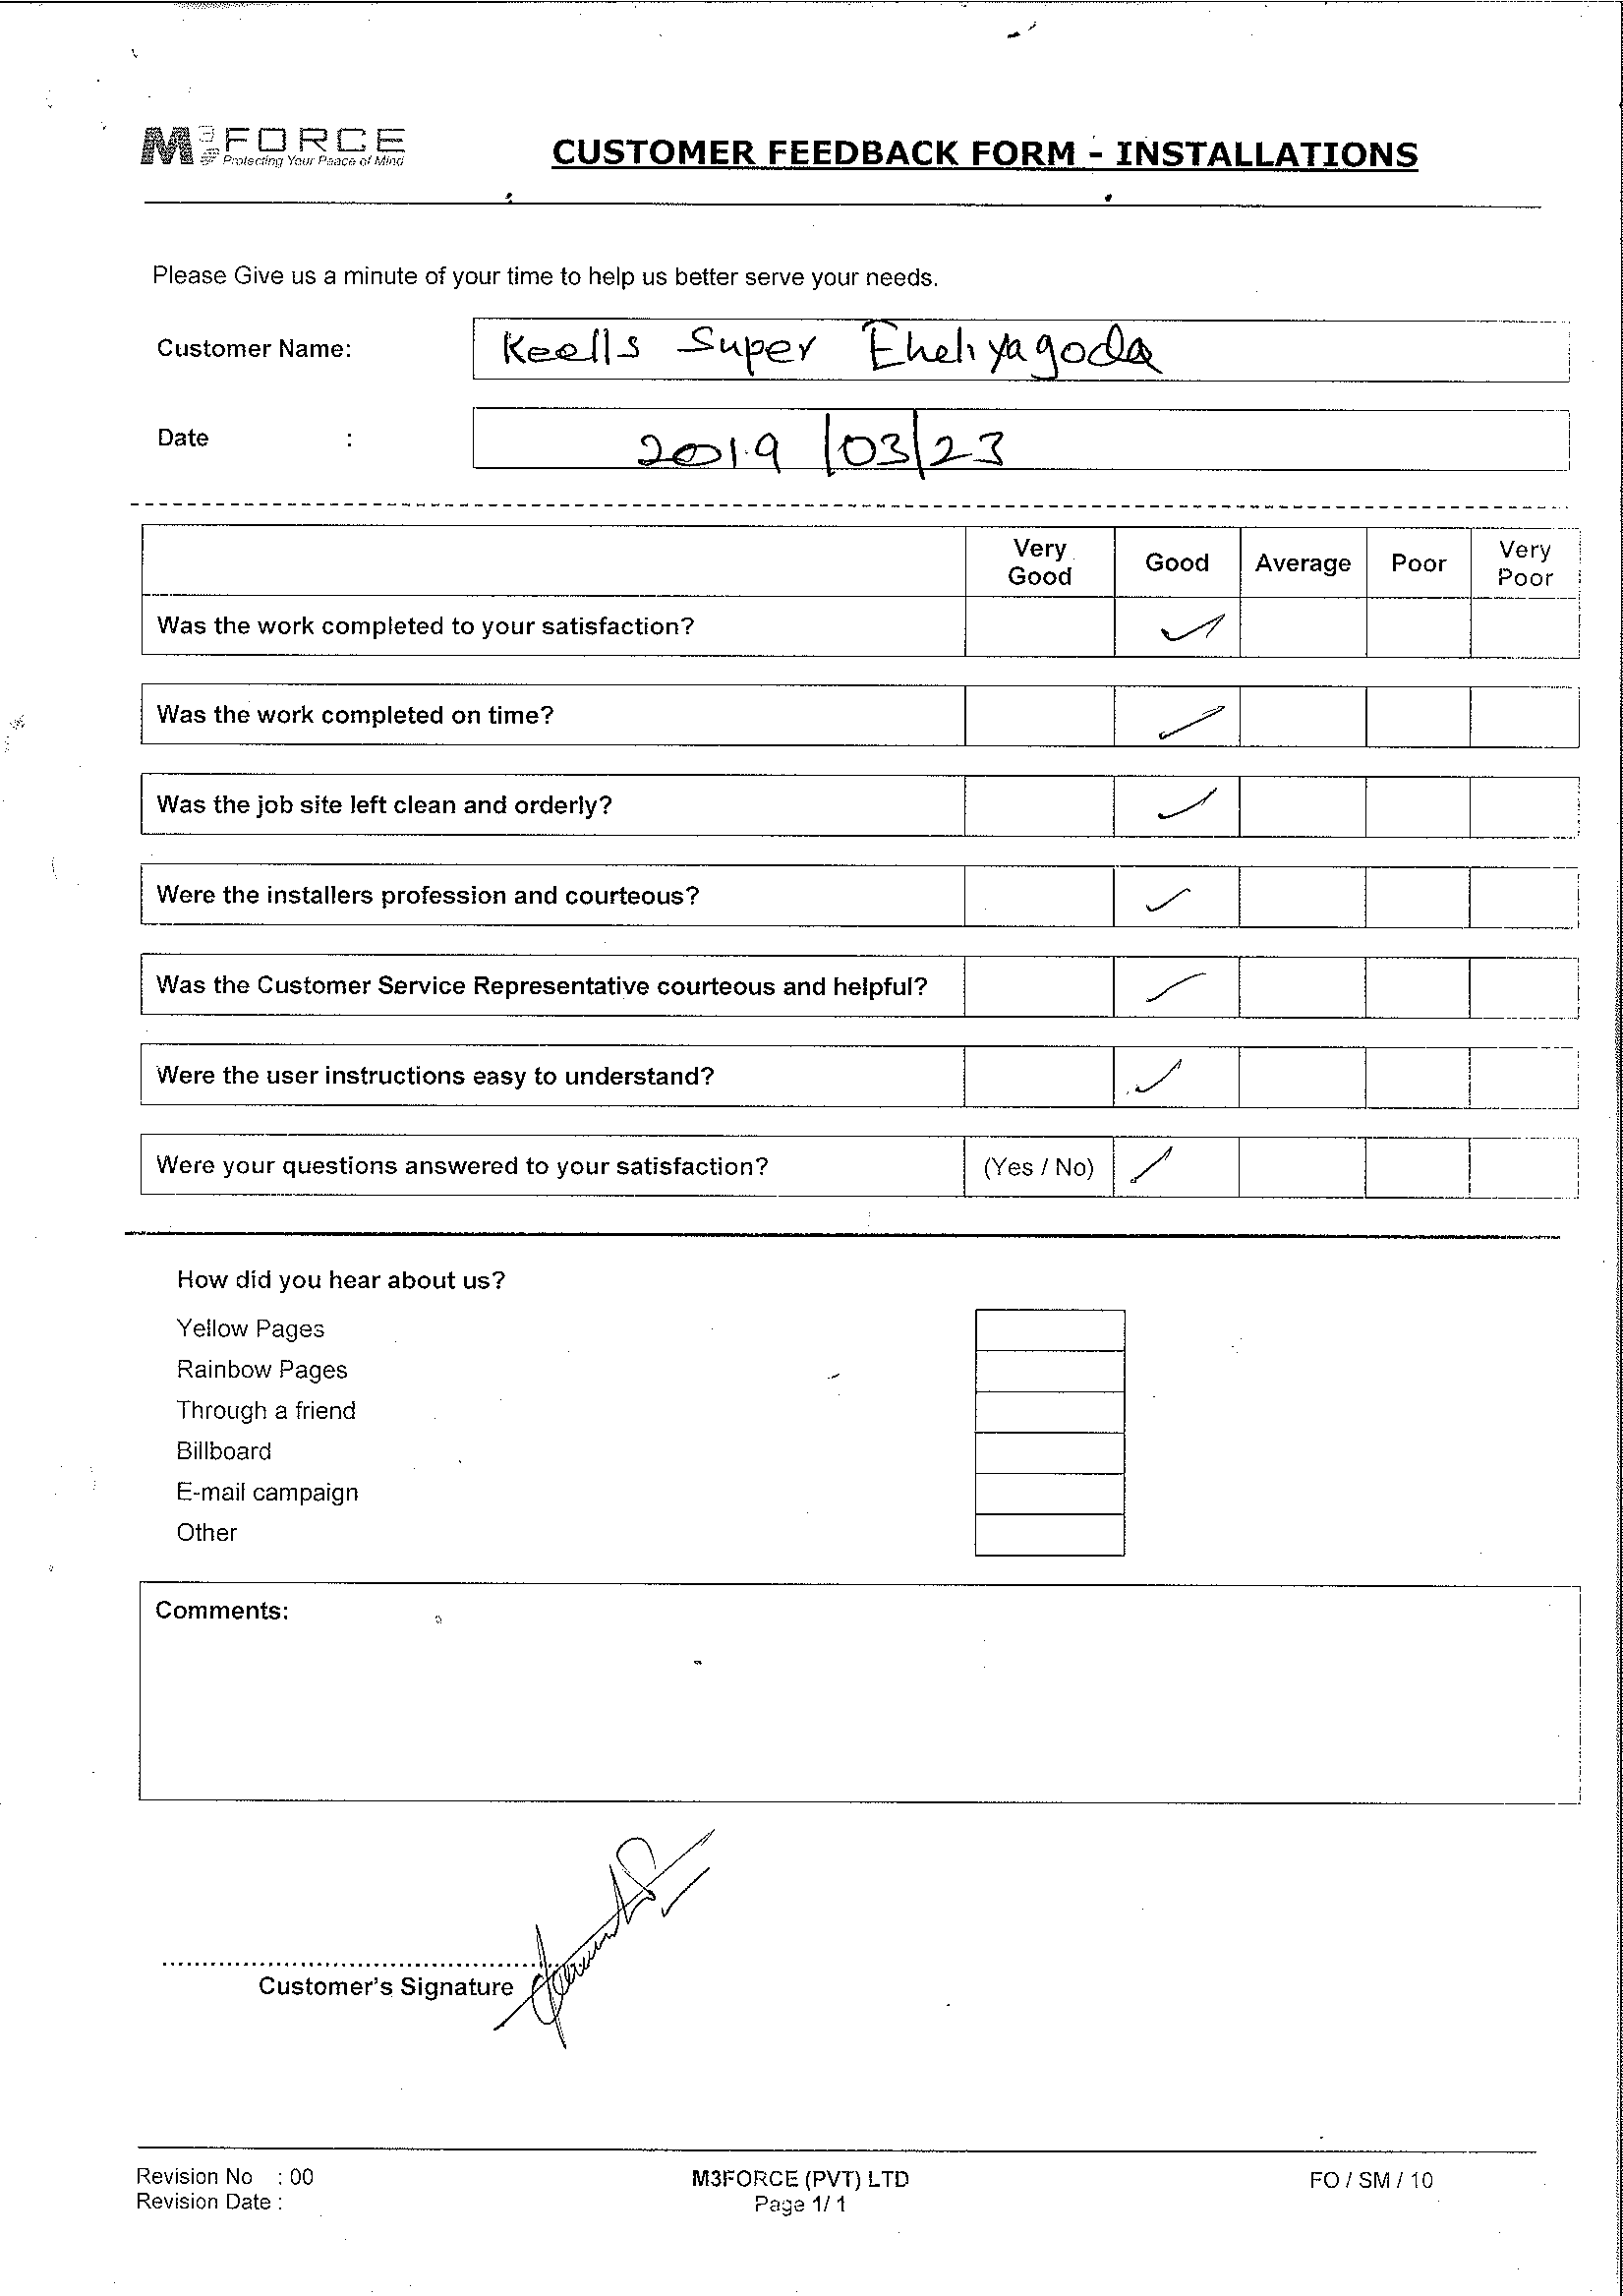 M3FORCE
Protecting Your Peace of Mind
CUSTOMER FEEDBACK FORM - INSTALLATIONS
Please Give us a minute of your time to help us better serve your needs.
Customer Name: Keells Super Eheliyagoda
Date : 2019/03/23
Very Good Good Average Poor Very Poor
Was the work completed to your satisfaction? ✓
Was the work completed on time? ✓
Was the job site left clean and orderly? ✓
Were the installers profession and courteous? ✓
Was the Customer Service Representative courteous and helpful? ✓
Were the user instructions easy to understand? ✓
Were your questions answered to your satisfaction? (Yes / No) ✓
How did you hear about us?
Yellow Pages
Rainbow Pages
Through a friend
Billboard
E-mail campaign
Other
Comments:
Customer's Signature
Revision No : 00 M3FORCE (PVT) LTD FO / SM / 10
Revision Date : Page 1/ 1